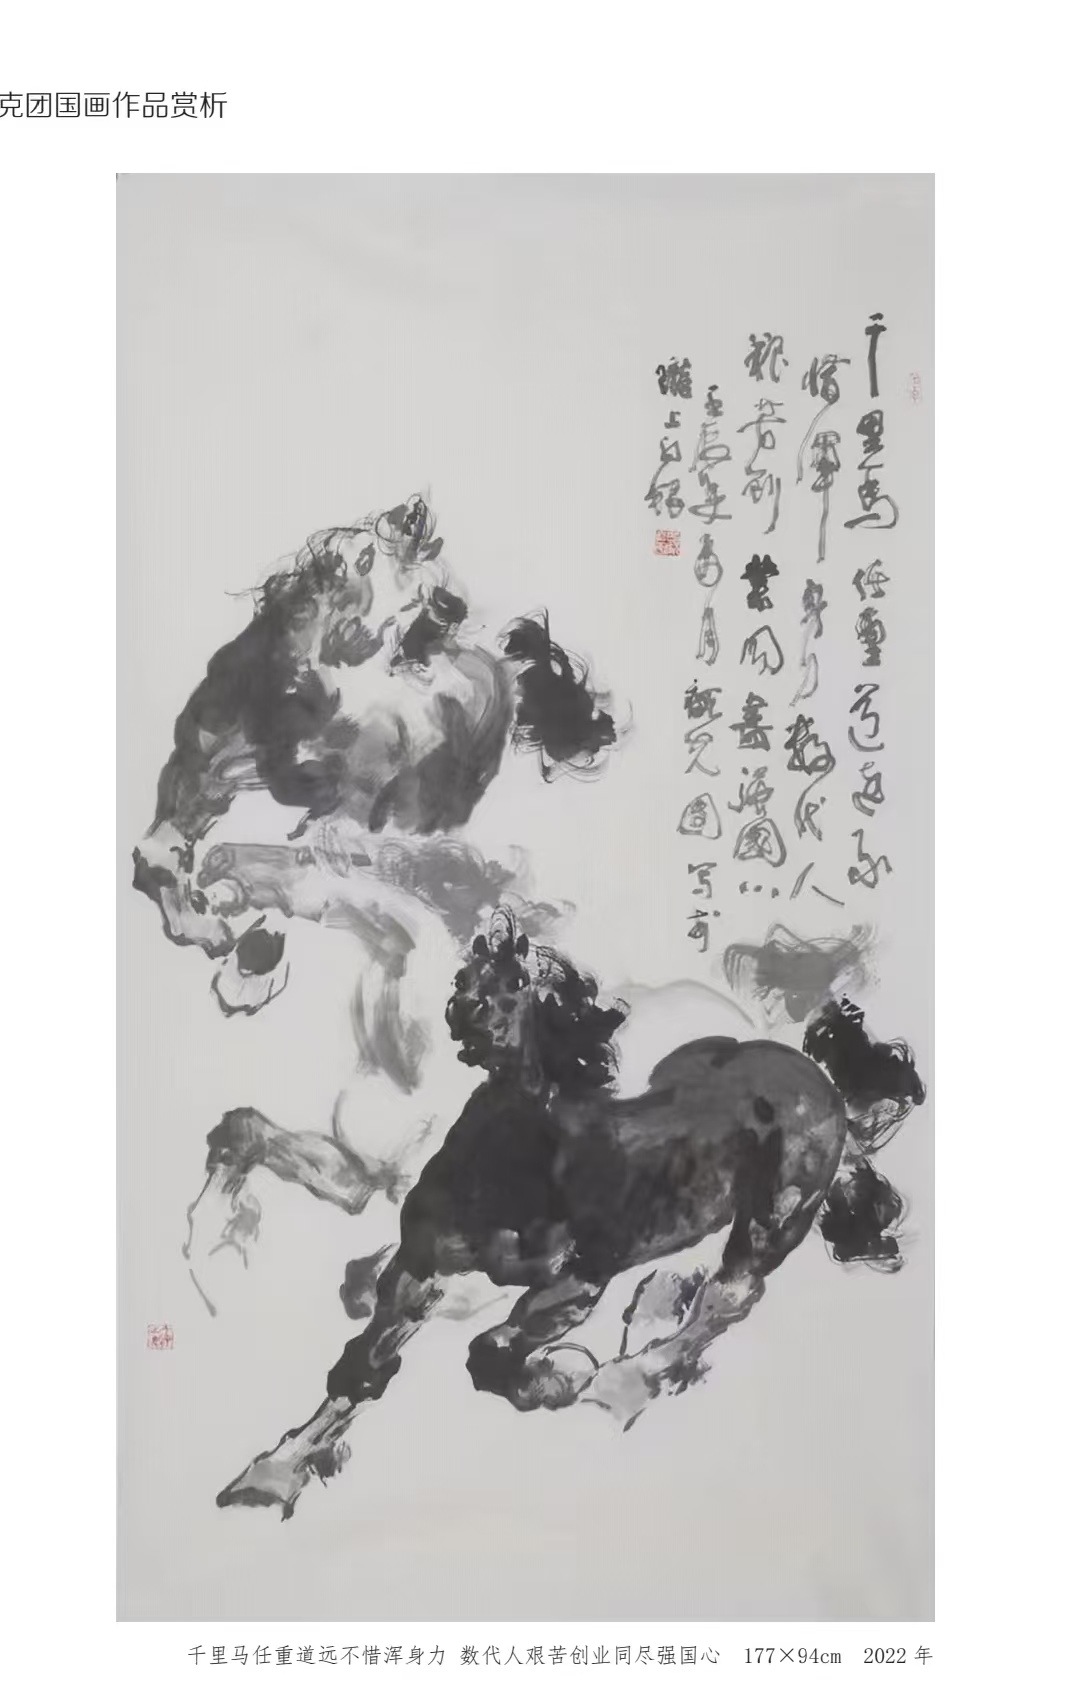 克团国画作品赏析
千里馬任重道遠不
惜渾身力數代人
艱苦創業同盡強國心
壬寅年 月魏克团写於
隴上白银
千里马任重道远不惜浑身力 数代人艰苦创业同尽强国心 177×94cm 2022年